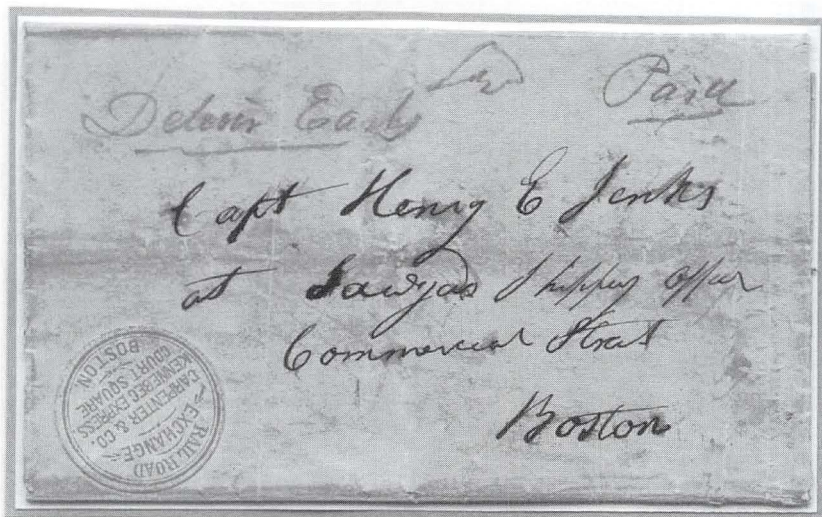 Deliver Early Paid
Capt Henry E Jenks
at Sawyers Shipping Office
Commercial Street
Boston
RAIL ROAD
EXCHANGE
CARPENTER & CO
KENNEBEC EXPRESS
COURT SQUARE
BOSTON